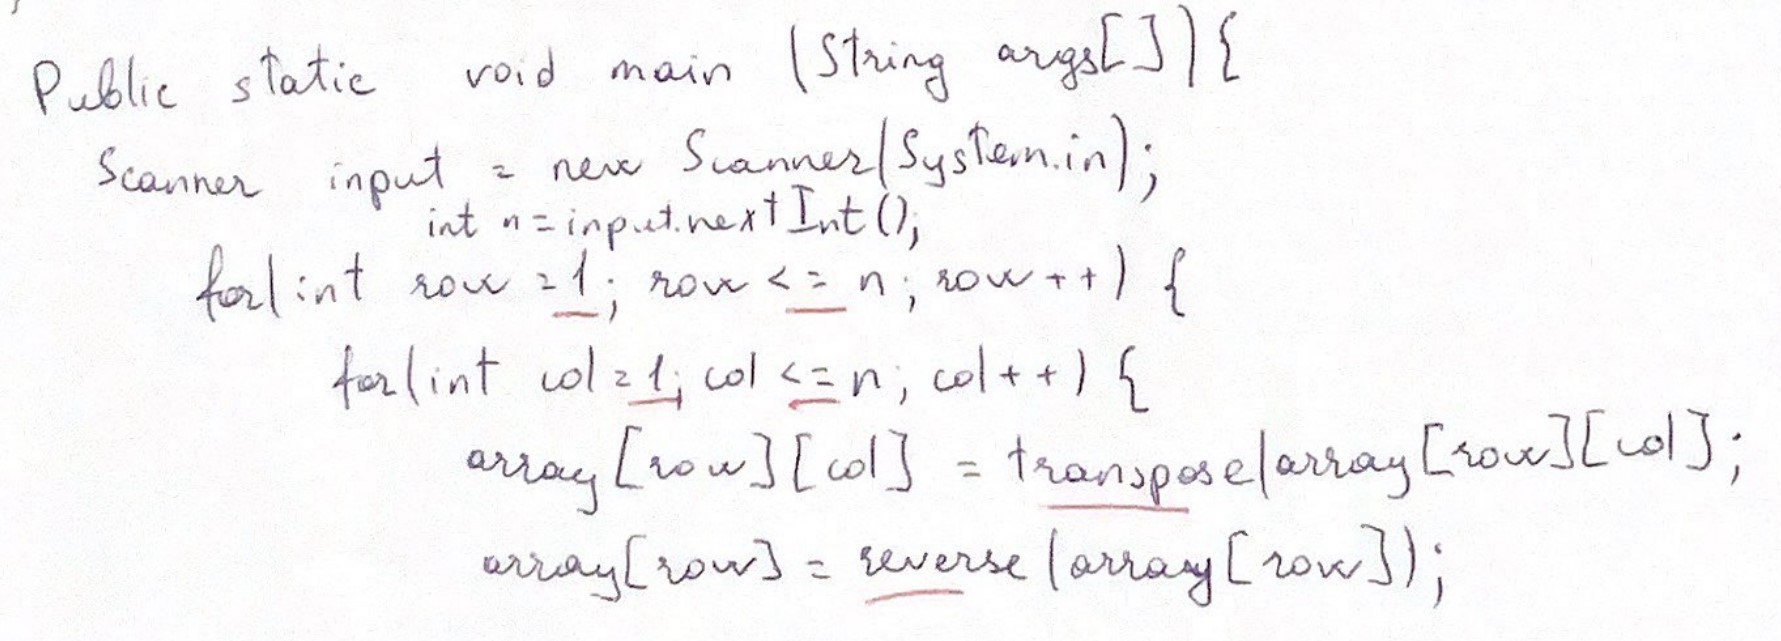 Public static void main (String args[]){
Scanner input = new Scanner(System.in);
int n=input.nextInt();
for(int row =1; row <= n; row++) {
for(int col=1; col <=n; col++) {
array[row][col] = transpose(array[row][col];
array[row] = reverse(array[row]);